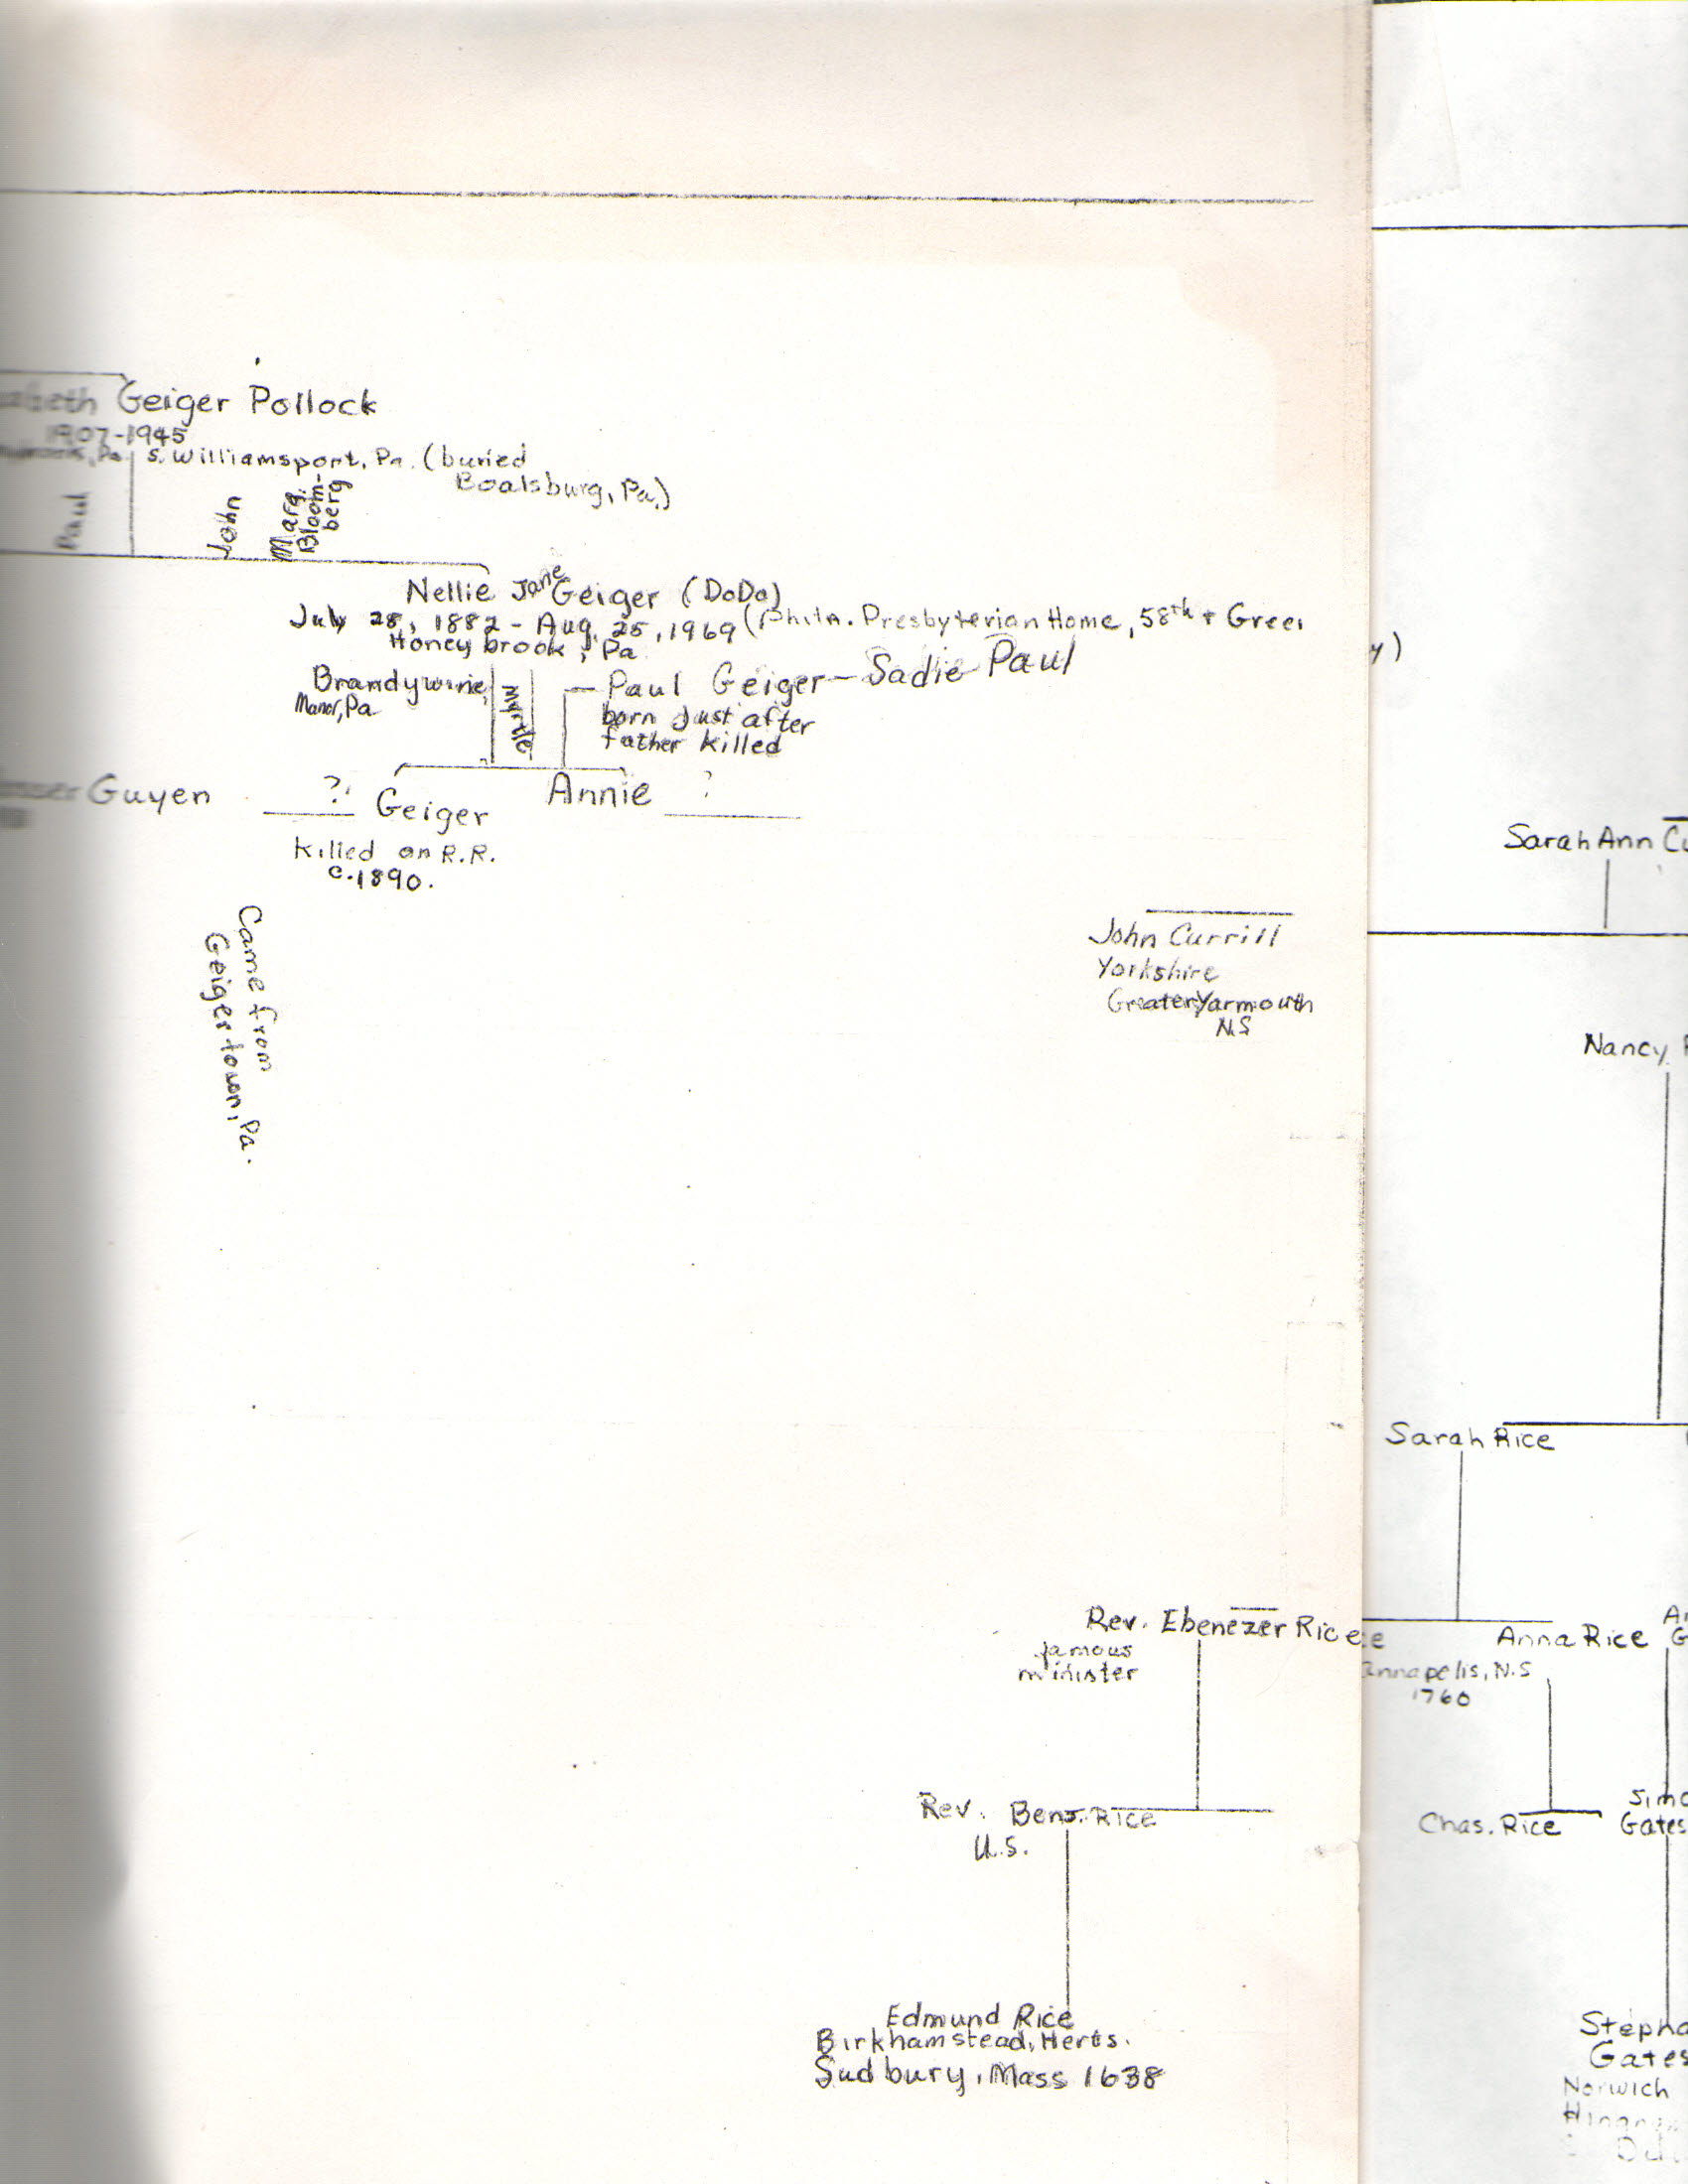 Geiger Pollock
1907-1945
S. Williamsport, Pa. (buried
Boalsburg, Pa.)
Paul
John
Marg.
Bloom-
berg
Nellie Jane Geiger (DoDo)
July 28, 1882 - Aug. 25, 1969 (Phila. Presbyterian Home, 58th + Gree
Honey brook, Pa.
Brandywine
Manor, Pa
Myrtle
Paul Geiger - Sadie Paul
born just after
father killed
Guyen
? Geiger
Annie ?
killed on R.R.
c. 1890.
Came from
Geigertown, Pa.
John Currill
Yorkshire
Greater Yarmouth
N.S
Sarah Ann
Nancy
Sarah Rice
Rev. Ebenezer Rice
famous
minister
Anna Rice
Annapolis, N.S
1760
Rev. Benj. Rice
U.S.
Chas. Rice
Gates
Edmund Rice
Birkhamstead, Herts.
Sudbury, Mass 1638
Gates
Norwich